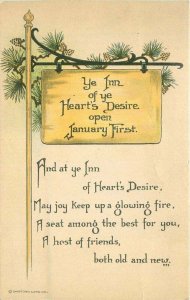 Ye Inn
of ye
Heart's Desire
open
January First.
And at ye Inn
of Heart's Desire,
May joy keep up a glowing fire,
A seat among the best for you,
A host of friends,
both old and new.